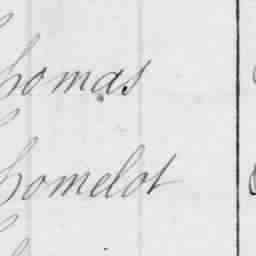 homas
homelot